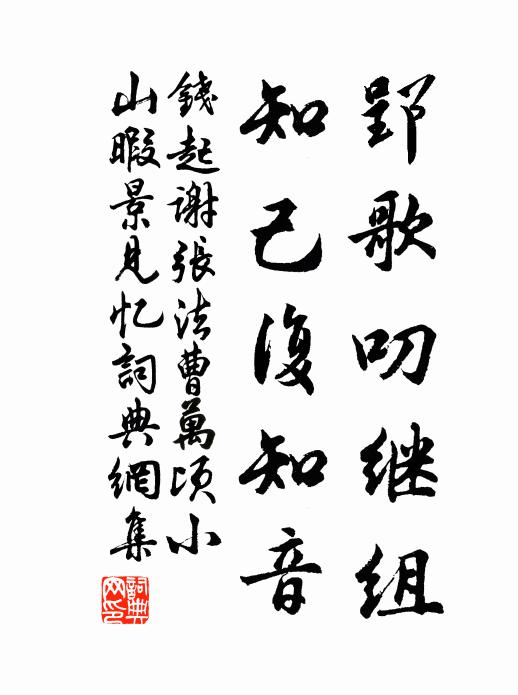 郢歌叨继组
知己復知音
錢起謝張法曹萬頃小
山暇景見忆詞典網集
詞典网印